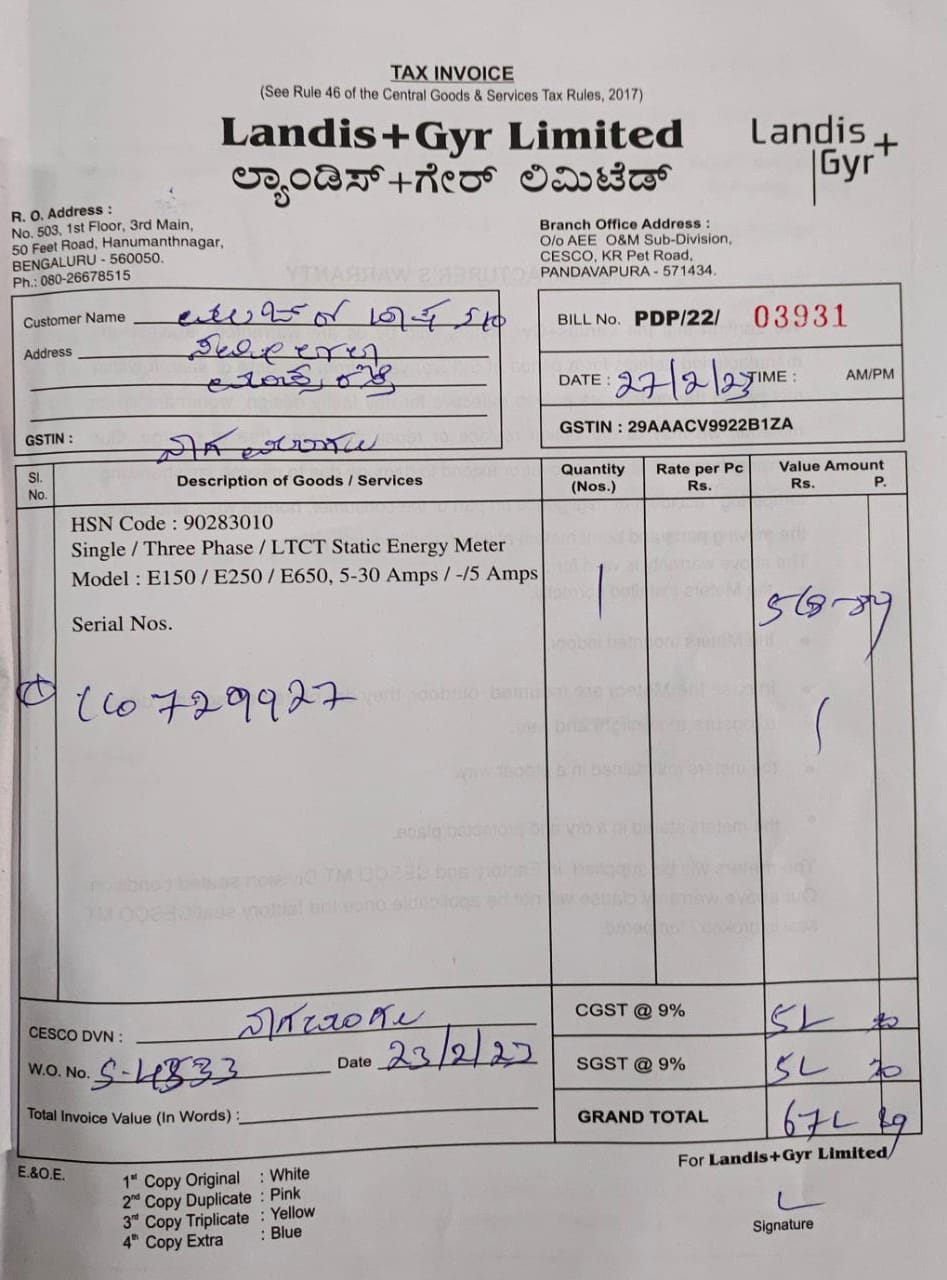 TAX INVOICE
(See Rule 46 of the Central Goods & Services Tax Rules, 2017)
Landis+Gyr Limited
ಲ್ಯಾಂಡಿಸ್+ಗೇರ್ ಲಿಮಿಟೆಡ್
Landis
Gyr+
R. O. Address :
No. 503, 1st Floor, 3rd Main,
50 Feet Road, Hanumanthnagar,
BENGALURU - 560050.
Ph.: 080-26678515
Branch Office Address :
O/o AEE O&M Sub-Division,
CESCO, KR Pet Road,
PANDAVAPURA - 571434.
Customer Name
Address
GSTIN :
BILL No. PDP/22/ 03931
DATE : 27/2/23 TIME : AM/PM
GSTIN : 29AAACV9922B1ZA
Sl. No. Description of Goods / Services Quantity (Nos.) Rate per Pc Rs. Value Amount Rs. P.
HSN Code : 90283010
Single / Three Phase / LTCT Static Energy Meter
Model : E150 / E250 / E650, 5-30 Amps / -/5 Amps 1
Serial Nos.
729927
CESCO DVN :
W.O. No. Date
Total Invoice Value (In Words) :
CGST @ 9%
SGST @ 9%
GRAND TOTAL
E.&O.E.
1st Copy Original : White
2nd Copy Duplicate : Pink
3rd Copy Triplicate : Yellow
4th Copy Extra : Blue
For Landis+Gyr Limited
Signature